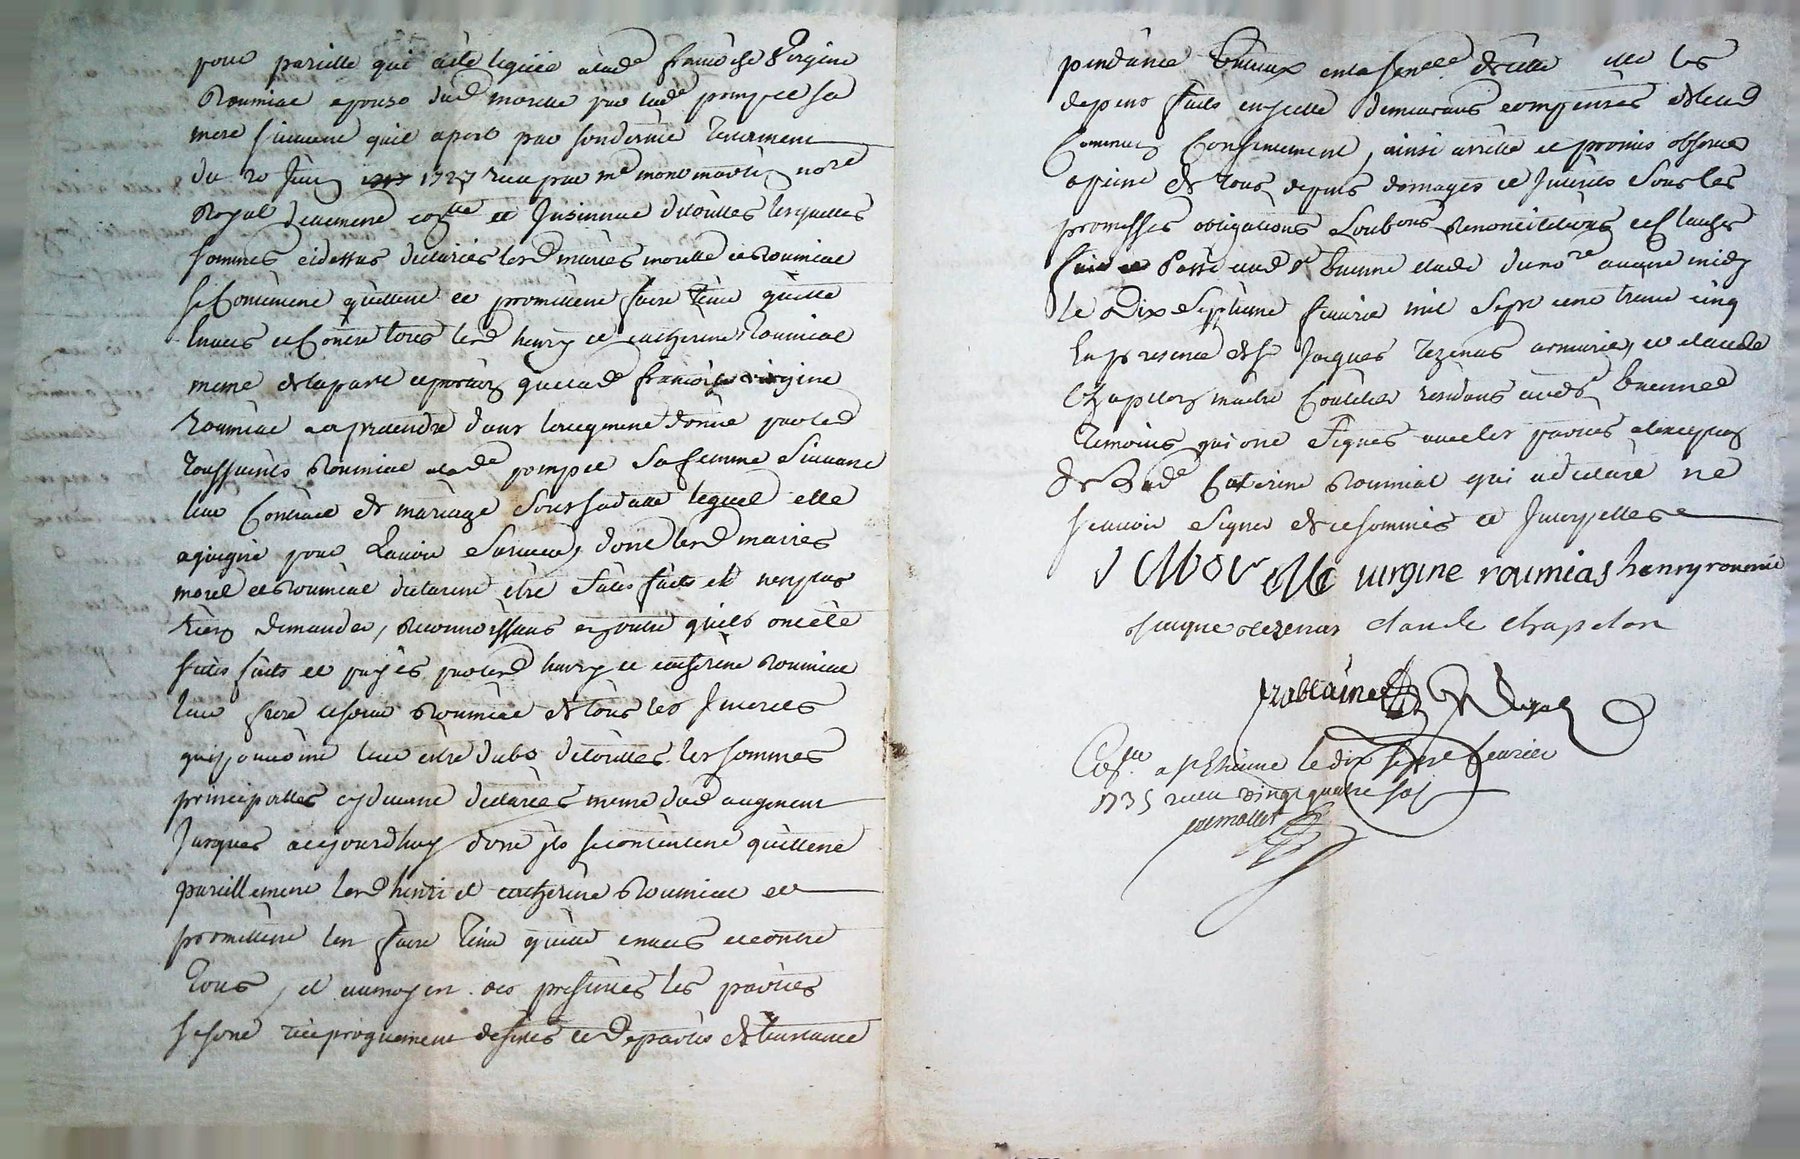 pour pareille qui a été leguée a lad.e françoise Virgine
Roumiac epouse dud morelle par lad.e pompee sa
mere suivant quil apert par son dernier testament
du 20 Juin 1727 receu par m.e montmartin no.re
Royal deuement co.llé et Insinué de touttes lesquelles
sommes cidessus declarées lesd mariés morelle et Roumiac
se Contentent quittent et promettent faire tenir quitte
Envers et Contre tous lesd henry et catherine Roumiac
meme de la part et portion que lad françoise virgine
Roumiac a a pretendre dans laugment donné par led
toussaints Roumiac a lad.e pompee sa femme suivant
leur Contract de mariage sous sa datte lequel elle
a gaigné pour Lavoir survecu, dont lesd mariés
morel et Roumiac declarent etre satisfaits et nen plus
rien demander, Reconnoissans en outre quils ont eté
satisfaits et payés par lesd henry et catherine Roumiac
leur frere et soeur Roumiac de tous les Interets
qui pouvoint leur etre dubs de touttes les sommes
principalles cydevant declarées meme dud augment
Jusques a cejourdhuy dont ils se contentent quittent
pareillement lesd henri et catherine Roumiac et
promettent les faire tenir quitte envers et contre
tous, et au moyen des presentes les parties
se sont reciproquement desistés et departis de linstance
pendante entreux en la senec.ée de cette ville les
depens faits en jcelle demeurans compensés de leur
Commun Consentement, ainsi arretté et promis observer
a peine de tous depens domages et Interets sous les
promesses obligations soubons Renonciations et Clauses
fait et Passé aud S.t Etienne etude du no.re avant midy
le Dix Septieme fevrier mil Sept cent trente cinq
En presence de s.r Jacques Tezenas armurier, et claude
Chapelon maitre Coutelier residans aud S.t Etienne
temoins qui ont signés avec les parties a lexception
de lad.e Caterine Roumiac qui a declaré ne
scavoir signer de ce sommés et Interpellés
J Morelle virgine roumias henry roumie
Jacque tezenas claude chapelon
frablaine
Co.llé a st Etienne le dix sept fevrier
1735 receu vingt quatre sols